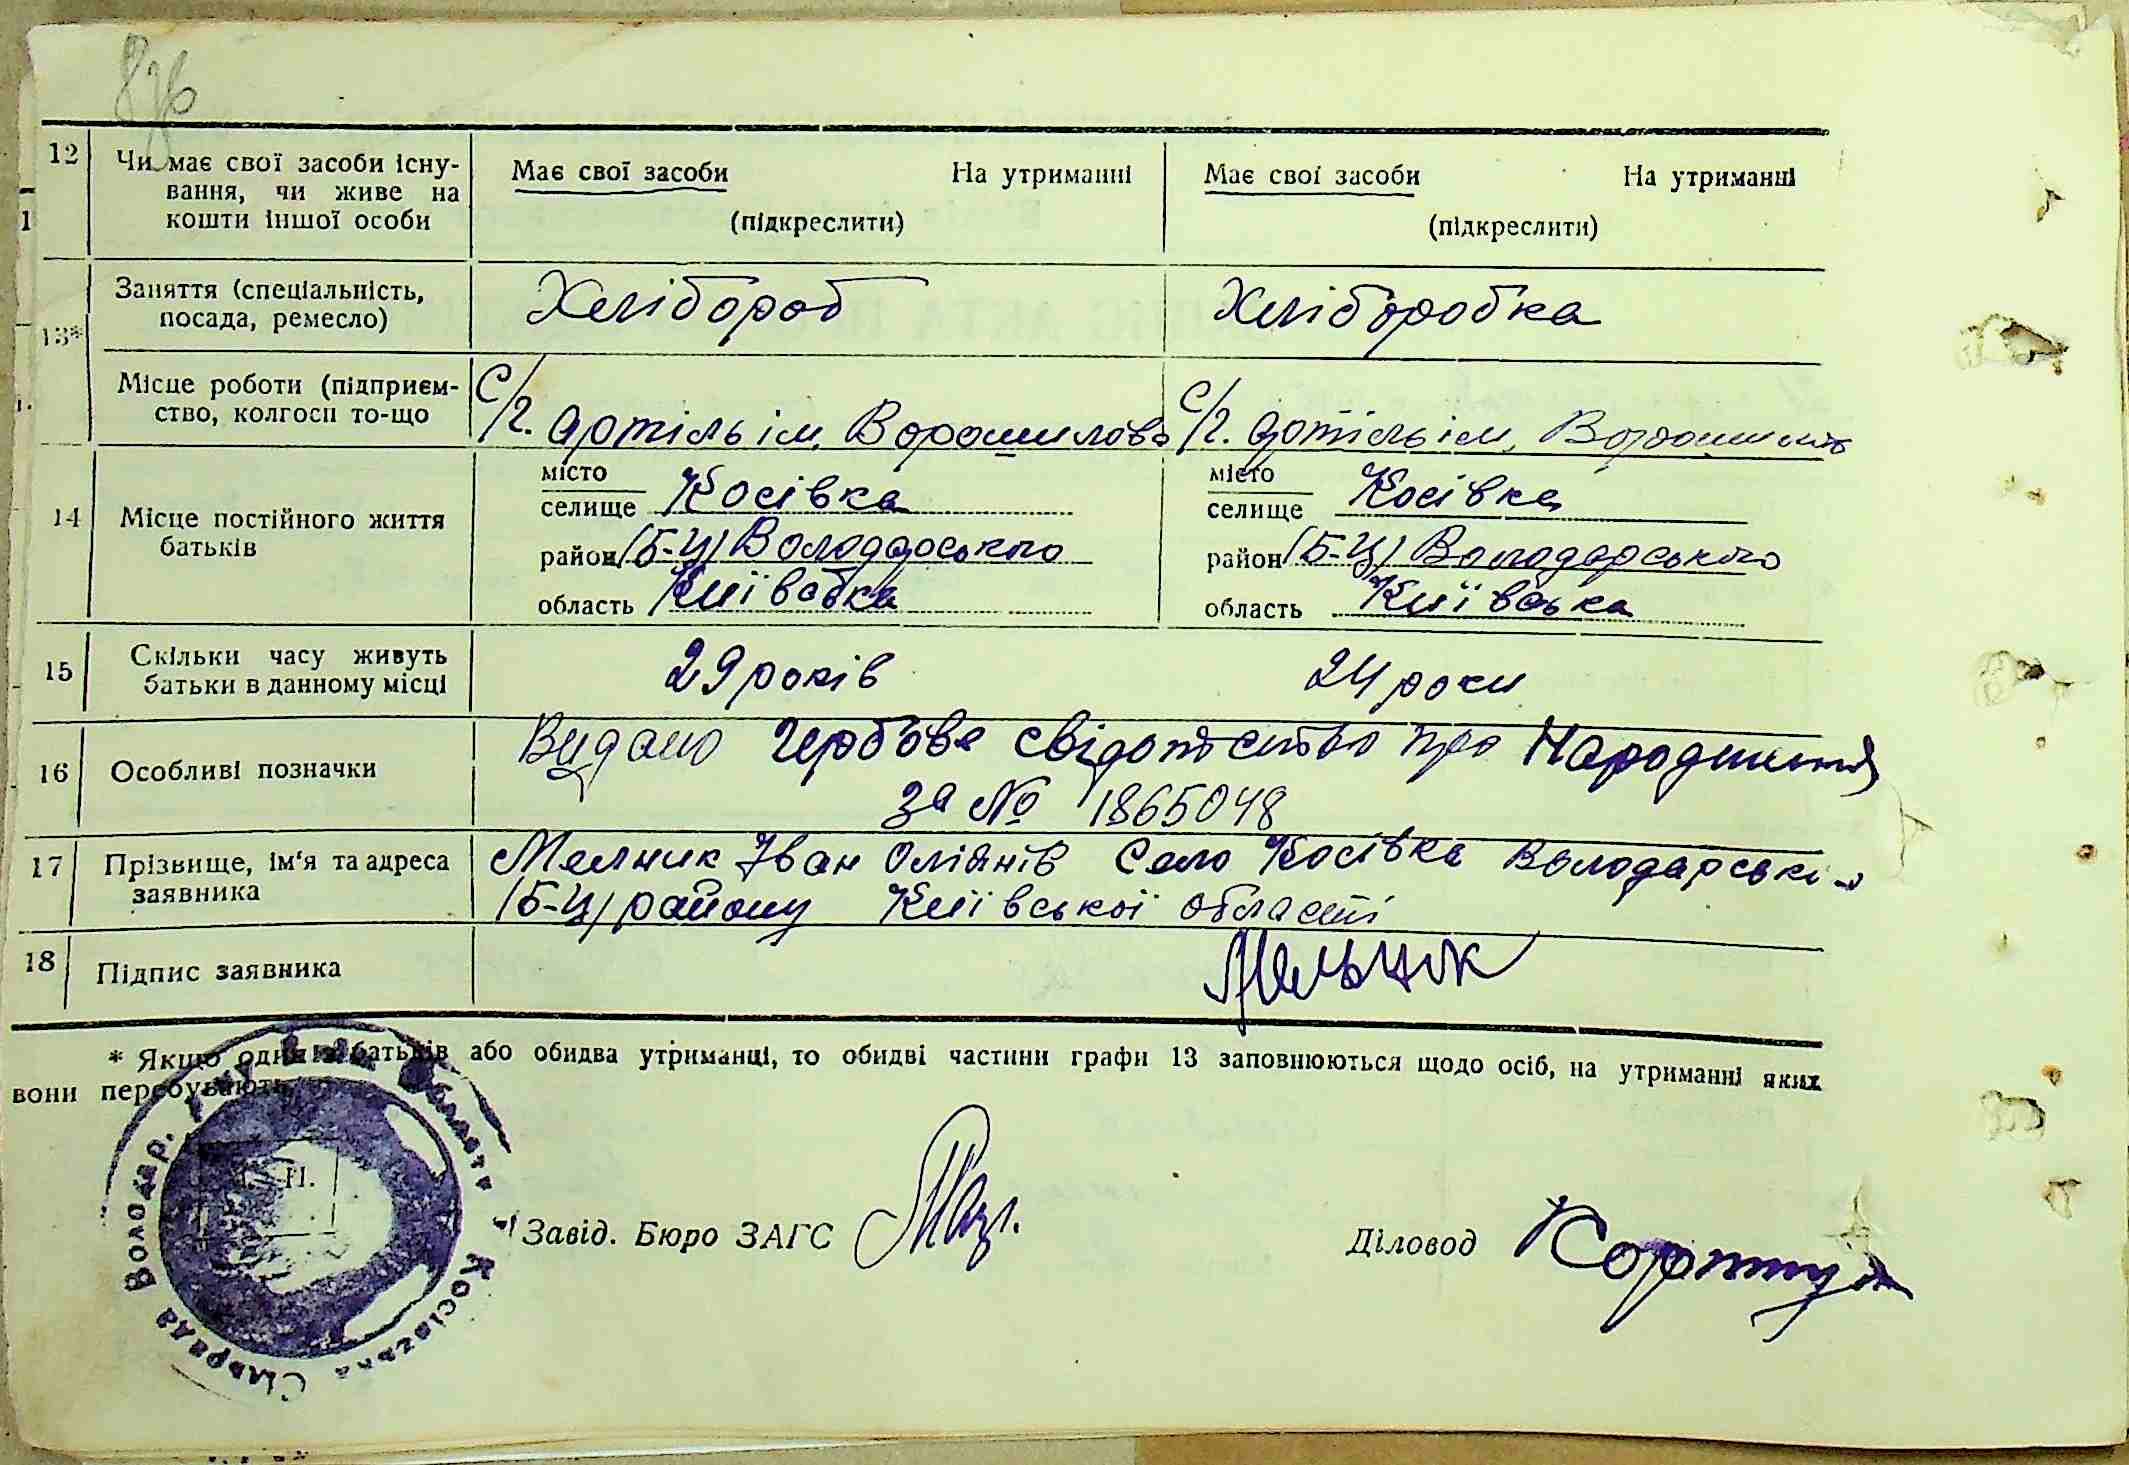 12 Чи має свої засоби існу- Має свої засоби На утриманні Має свої засоби На утриманні
вання, чи живе на
кошти іншої особи (підкреслити) (підкреслити)
13* Заняття (спеціальність, Хлібороб Хліборобка
посада, ремесло)
Місце роботи (підприєм- С/г. артіль ім. Ворошилова С/г. артіль ім. Ворошилова
ство, колгосп то-що
14 Місце постійного життя
батьків
місто
селище Косівка
район (Б-Ц) Володарського
область Київська
місто
селище Косівка
район (Б-Ц) Володарського
область Київська
15 Скільки часу живуть 29 років 24 роки
батьки в данному місці
16 Особливі позначки Видано гербове свідотство про Народження
за № 1865048
17 Прізвище, ім'я та адреса Мелник Іван Село Косівка
заявника (Б-Ц) району Київської області
18 Підпис заявника Мельник
* Якщо один з батьків або обидва утриманці, то обидві частини графи 13 заповнюються щодо осіб, на утриманні яких
вони перебувають.
Володар. Області Косівська Сільрада
П.
Завід. Бюро ЗАГС
Діловод